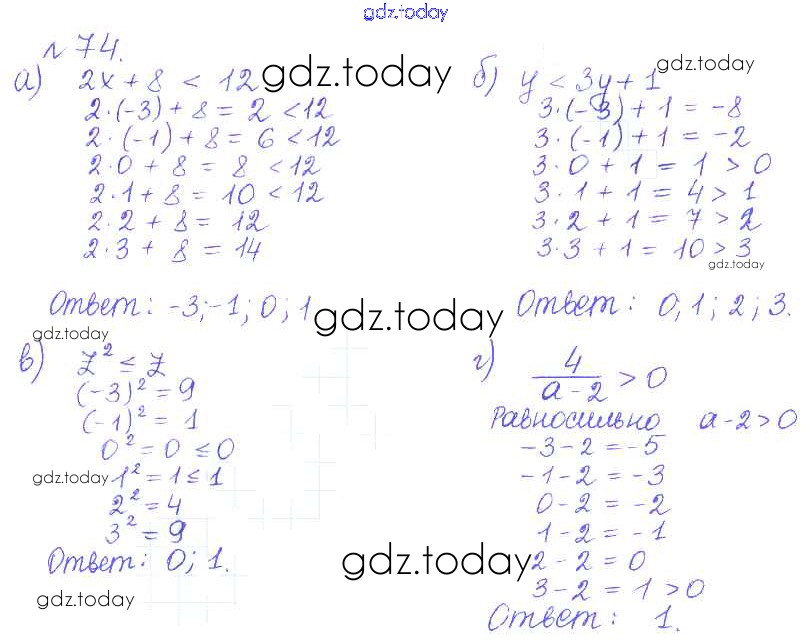 gdz.today
№ 74.
а) 2x + 8 < 12 gdz.today
2·(-3) + 8 = 2 < 12
2·(-1) + 8 = 6 < 12
2·0 + 8 = 8 < 12
2·1 + 8 = 10 < 12
2·2 + 8 = 12
2·3 + 8 = 14
Ответ: -3; -1; 0; 1
gdz.today
б) y < 3y + 1
gdz.today
3·(-3) + 1 = -8
3·(-1) + 1 = -2
3·0 + 1 = 1 > 0
3·1 + 1 = 4 > 1
3·2 + 1 = 7 > 2
3·3 + 1 = 10 > 3
gdz.today
Ответ: 0; 1; 2; 3.
gdz.today
в) z² ≤ z
(-3)² = 9
(-1)² = 1
0² = 0 ≤ 0
gdz.today 1² = 1 ≤ 1
2² = 4
3² = 9
Ответ: 0; 1.
gdz.today
г) 4/(a-2) > 0
Равносильно a-2 > 0
-3-2 = -5
-1-2 = -3
0-2 = -2
1-2 = -1
gdz.today 2-2 = 0
3-2 = 1 > 0
Ответ: 1.